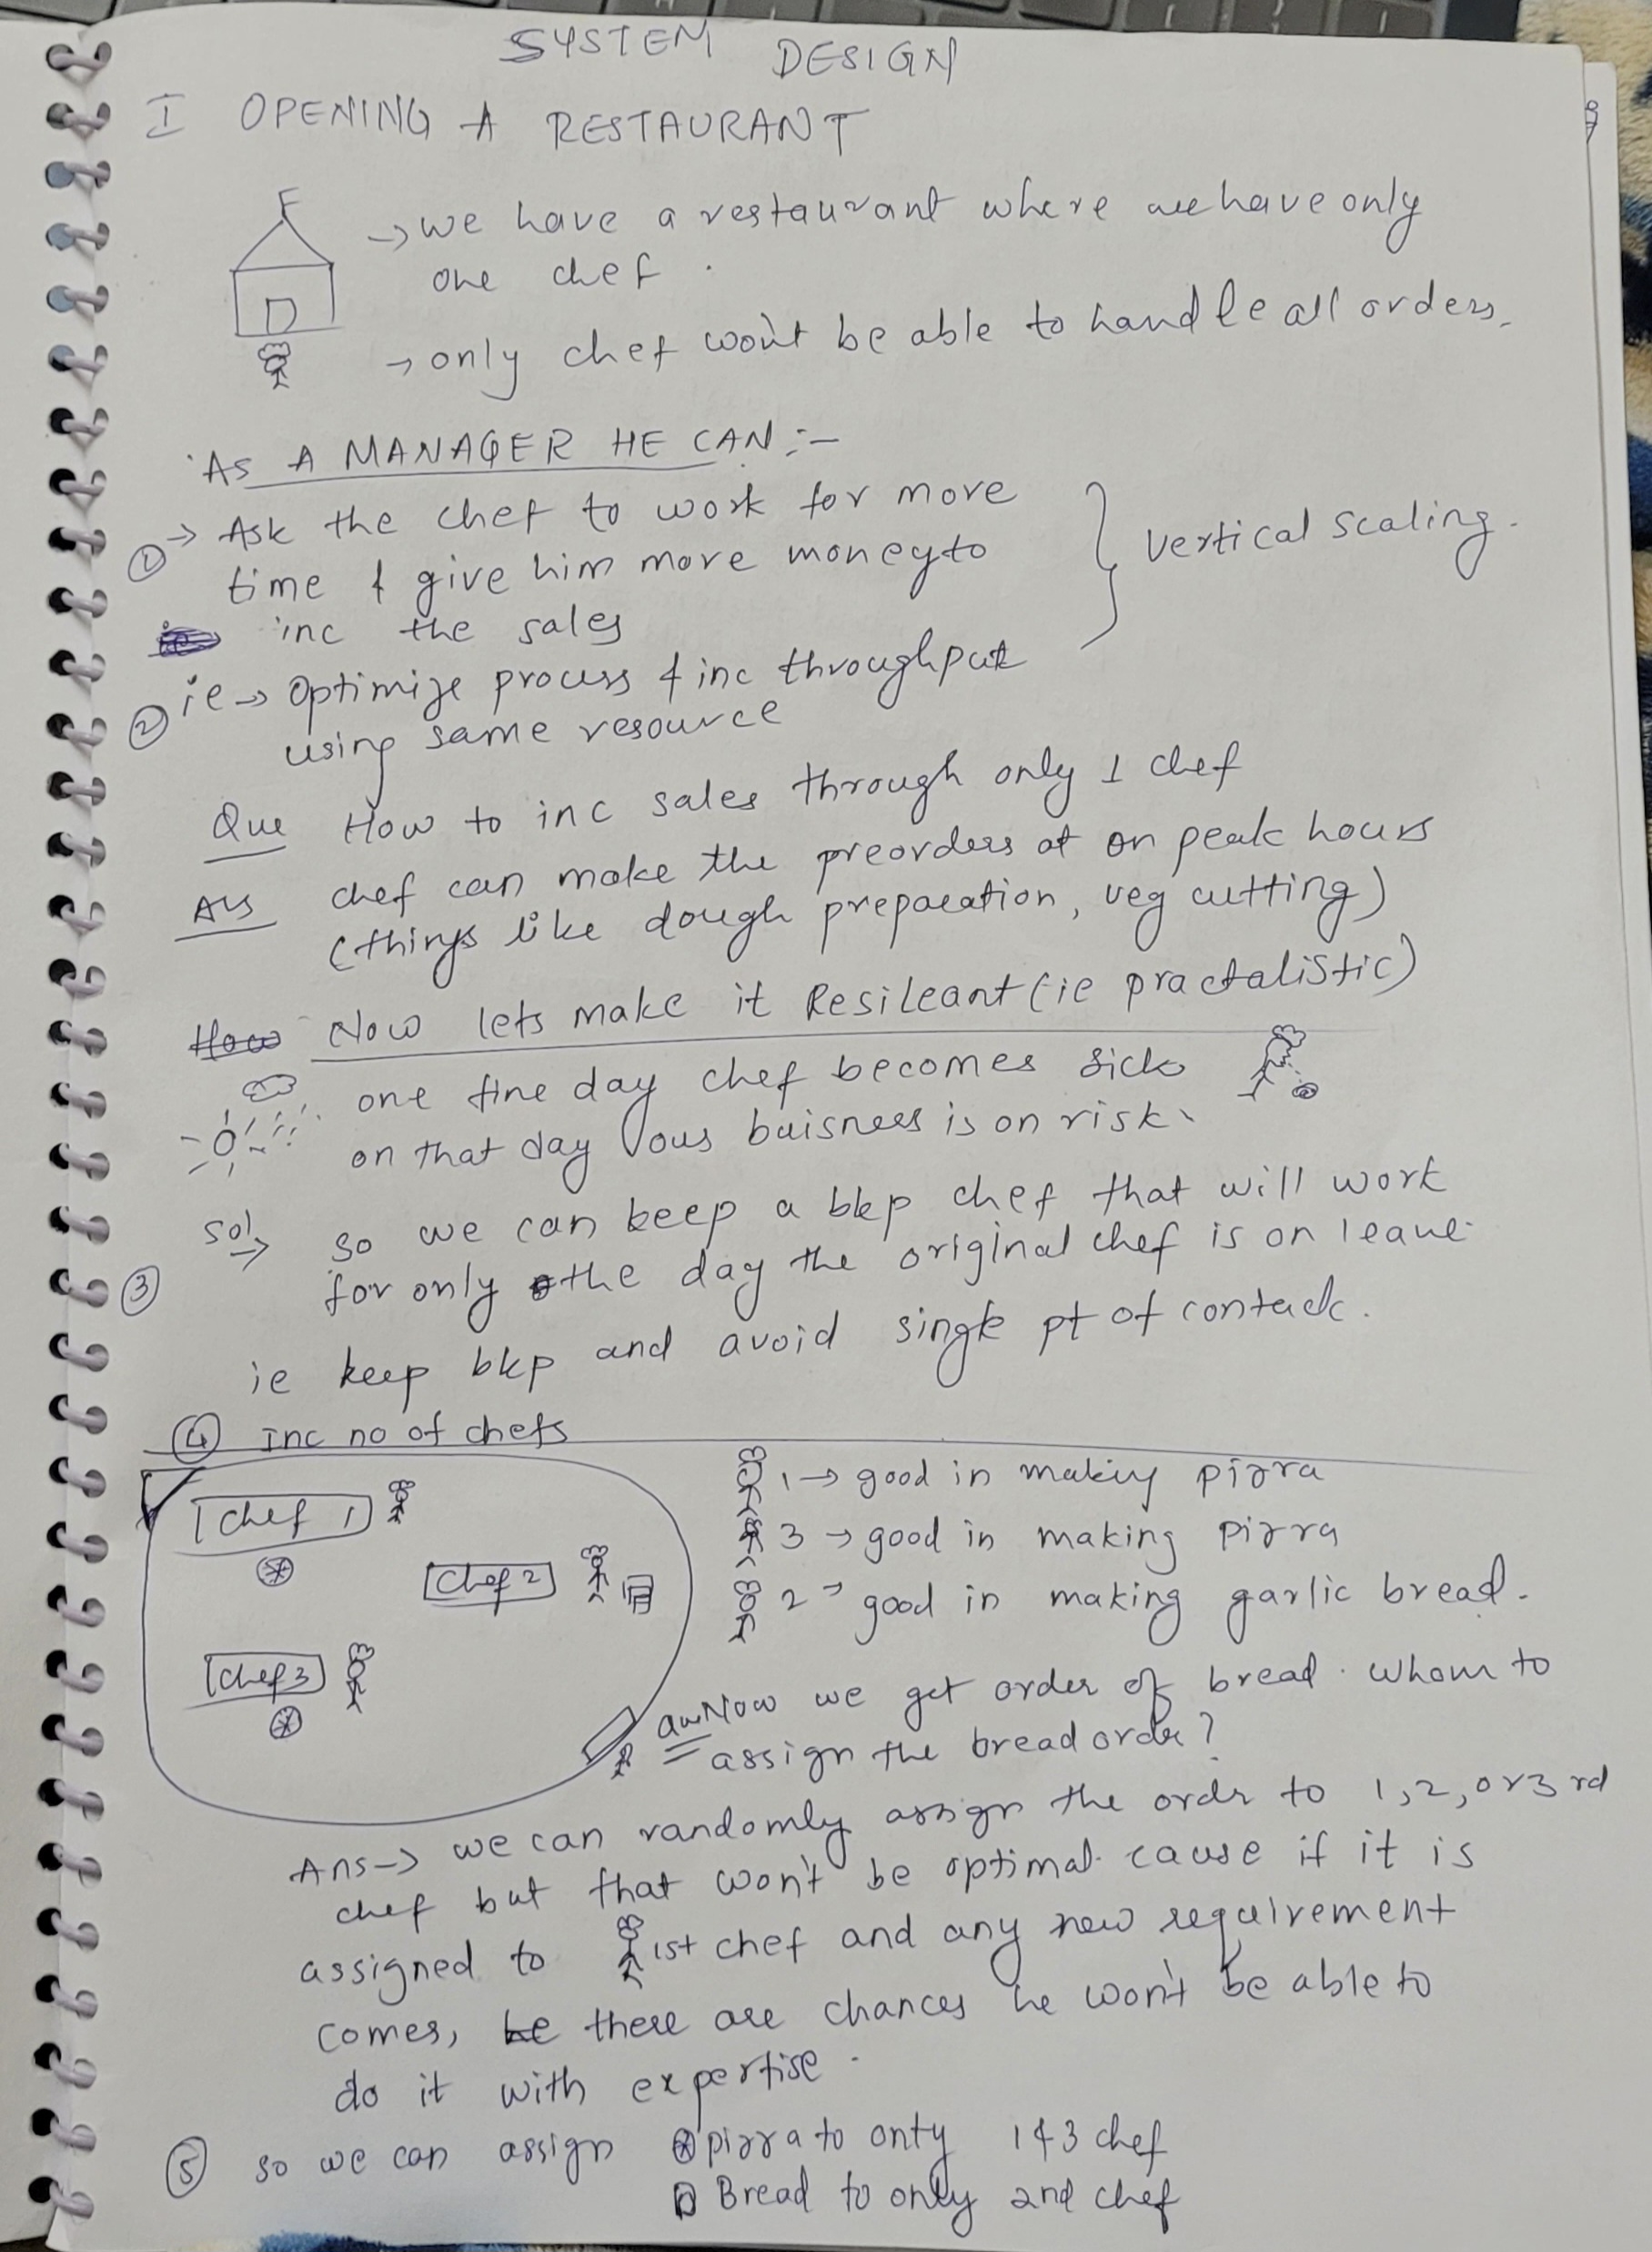 SYSTEM DESIGN
I OPENING A RESTAURANT
→ we have a restaurant where we have only
one chef.
→ only chef won't be able to handle all orders.
AS A MANAGER HE CAN :-
① → Ask the chef to work for more
time & give him more money to
inc the sales
vertical scaling.
② ie → Optimize process & inc throughput
using same resource
Que How to inc sales through only 1 chef
Ans chef can make the preorders at on peak hours
(things like dough preparation, veg cutting)
How Now lets make it Resileant (ie practalistic)
one fine day chef becomes sick
on that day ous buisness is on risk.
sol →
③ so we can keep a bkp chef that will work
for only the day the original chef is on leave.
ie keep bkp and avoid single pt of contack.
④ Inc no of chefs
chef 1
chef 2
chef 3
1 → good in making pizza
3 → good in making pizza
2 → good in making garlic bread.
Now we get order of bread. whom to
assign the bread order?
Ans → we can randomly assign the order to 1, 2, or 3rd
chef but that won't be optimal cause if it is
assigned to 1st chef and any new requirement
comes, he there are chances he won't be able to
do it with expertise.
⑤ so we can assign pizza to only 1 & 3 chef
Bread to only 2nd chef